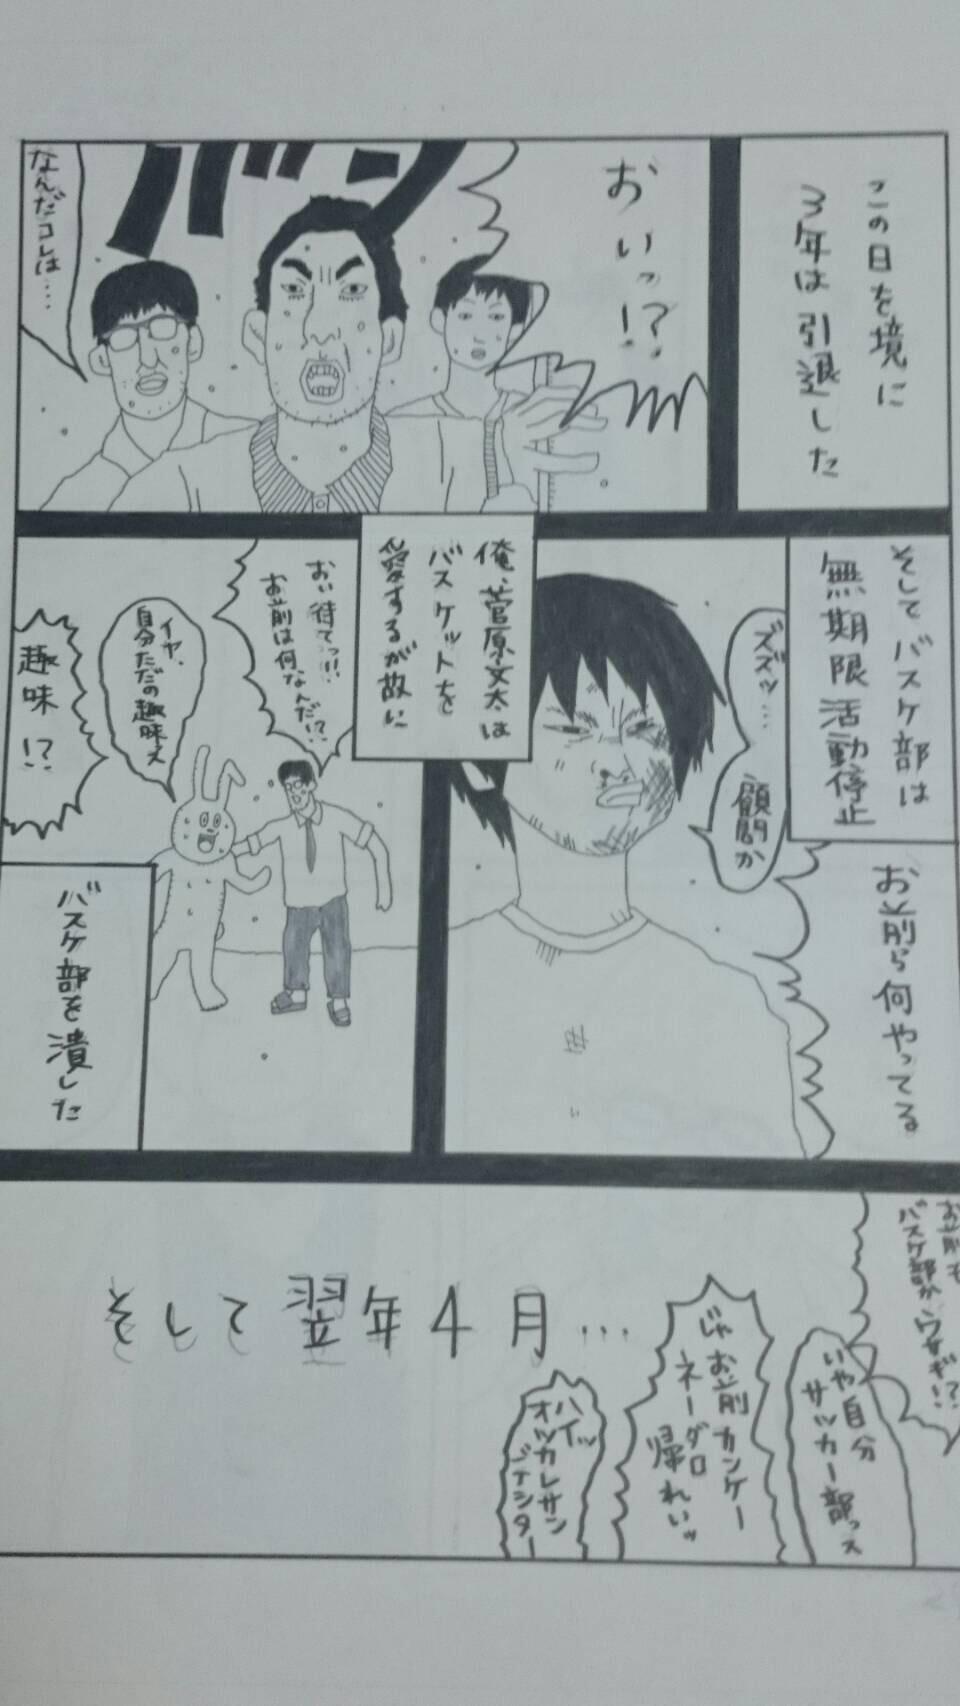 この日を境に
3年は引退した
おいっ!?
バンッ
なんだコレは・・・・
そしてバスケ部は
無期限活動停止
ズズッ・・・
顧問か
お前ら何やってる
俺、菅原文太は
バスケットを
愛するが故に
おい待てっ!!!
お前は何なんだ!?
イヤ、
自分ただの趣味っス
趣味!?
バスケ部を潰した
お前も
バスケ部か、ウサギ!?
いや自分
サッカー部っス
じゃお前カンケー
ネーダロ
帰れいッ
ハイッ
オツカレサン
ジテシター
そして翌年4月・・・